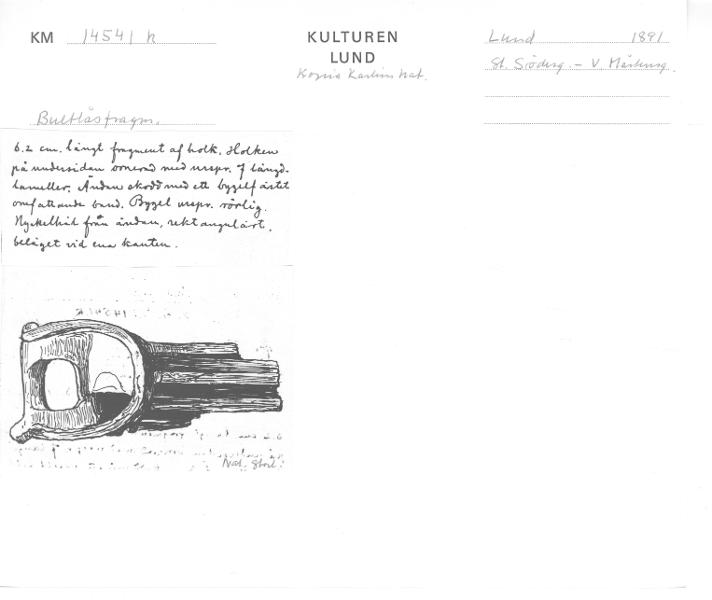 KM 14541 h
KULTUREN
LUND
Kopia Karlins kat.
Lund 1891
St. Söderg. – V. Mårtensg.
Bultlåsfragm.
6.2 cm. långt fragment af holk. Holken
på undersidan ornerad med urspr. 7 längd-
lameller. Ändan skodd med ett bygelfästet
omfattande band. Bygel urspr. rörlig.
Nyckelhål från ändan, rektangulärt,
beläget vid ena kanten.
Nat. Storl.